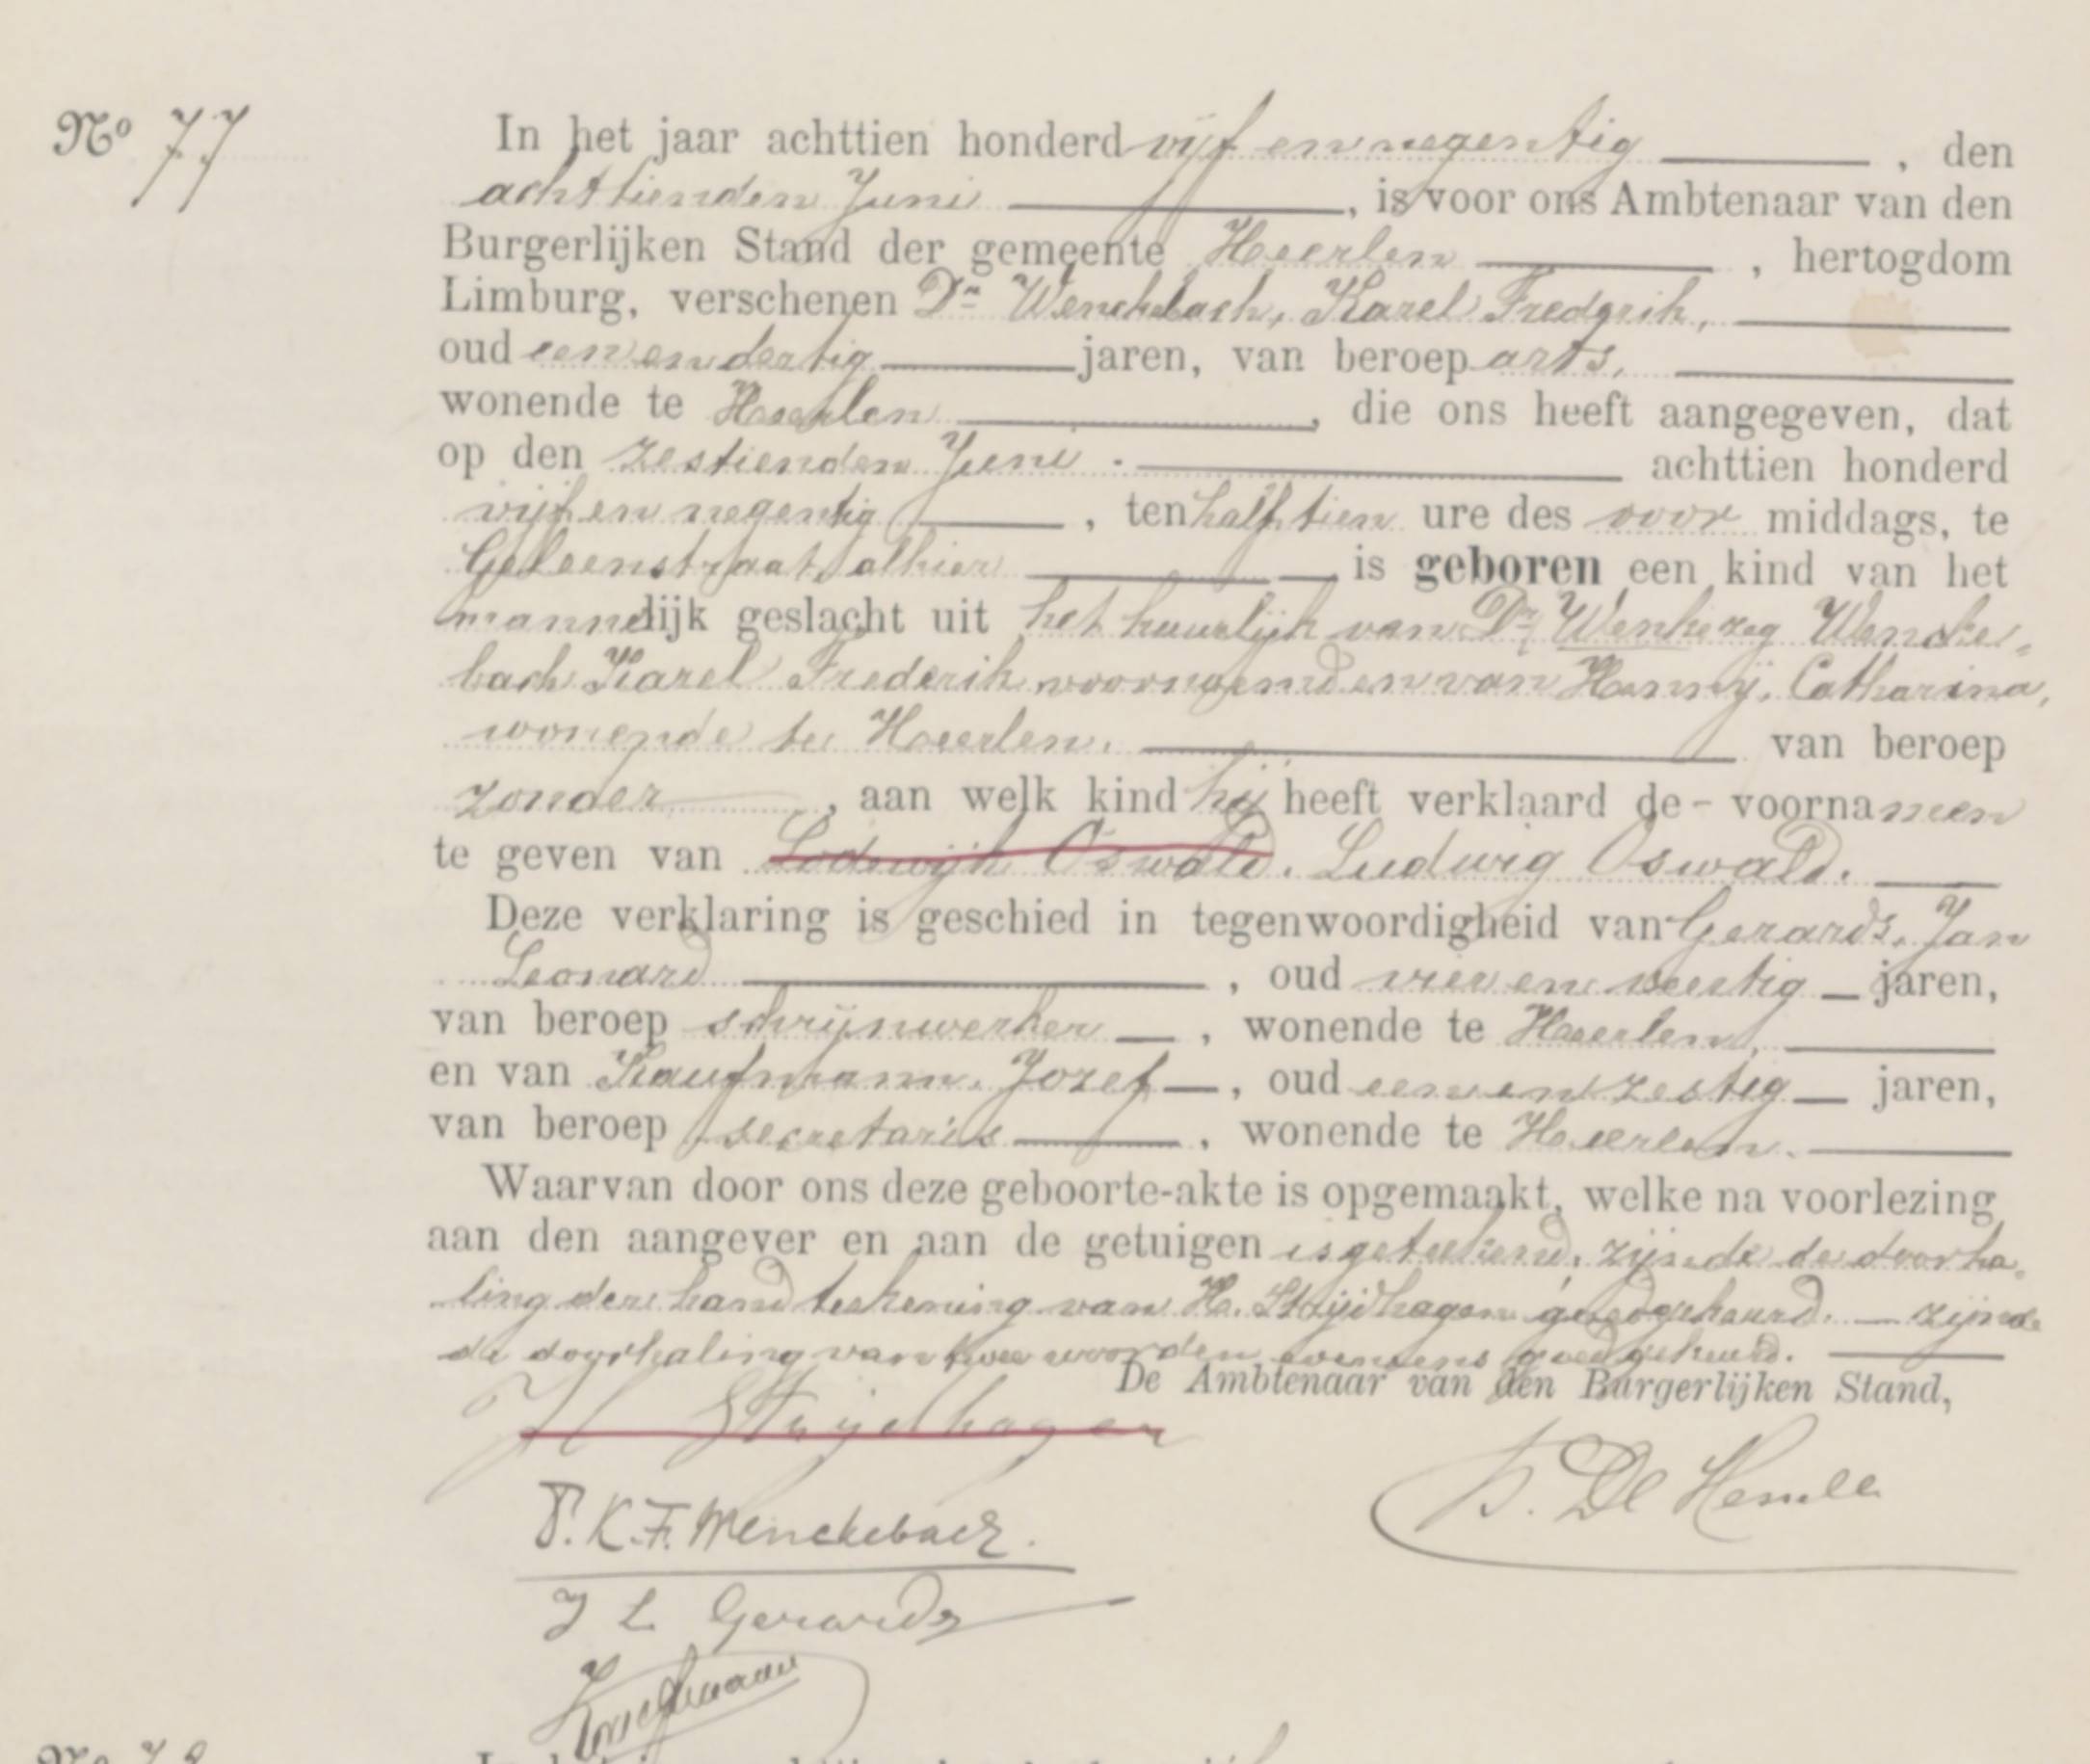 No 77
In het jaar achttien honderd vijf en negentig , den
achttienden Juni , is voor ons Ambtenaar van den
Burgerlijken Stand der gemeente Heerlen , hertogdom
Limburg, verschenen Dr Wenckebach, Karel Frederik,
oud een en dertig jaren, van beroep arts,
wonende te Heerlen , die ons heeft aangegeven, dat
op den zestienden Juni achttien honderd
vijf en negentig , ten half tien ure des voor middags, te
Geleenstraat alhier is geboren een kind van het
mannelijk geslacht uit het huwelijk van Dr Wencke-
bach Karel Frederik voornoemd en van Henny, Catharina,
wonende te Heerlen. van beroep
zonder , aan welk kind hij heeft verklaard de - voornamen
te geven van Lodewijk Oswald. Ludwig Oswald.
Deze verklaring is geschied in tegenwoordigheid van Gerards, Jan
Leonard , oud vier en veertig jaren,
van beroep schrijnwerker , wonende te Heerlen,
en van Kaufmann, Jozef , oud een en zestig jaren,
van beroep secretaris , wonende te Heerlen.
Waarvan door ons deze geboorte-akte is opgemaakt, welke na voorlezing
aan den aangever en aan de getuigen is geteekend, zijnde de doorha-
ling der handteekening van H. Strijdhagen goedgekeurd. — zijnde
de doorhaling van twee woorden eveneens goedgekeurd.
De Ambtenaar van den Burgerlijken Stand,
H Strijdhagen
K.F. Wenckebach.
De Hesselle
J L Gerards
Kaufmann
No 78